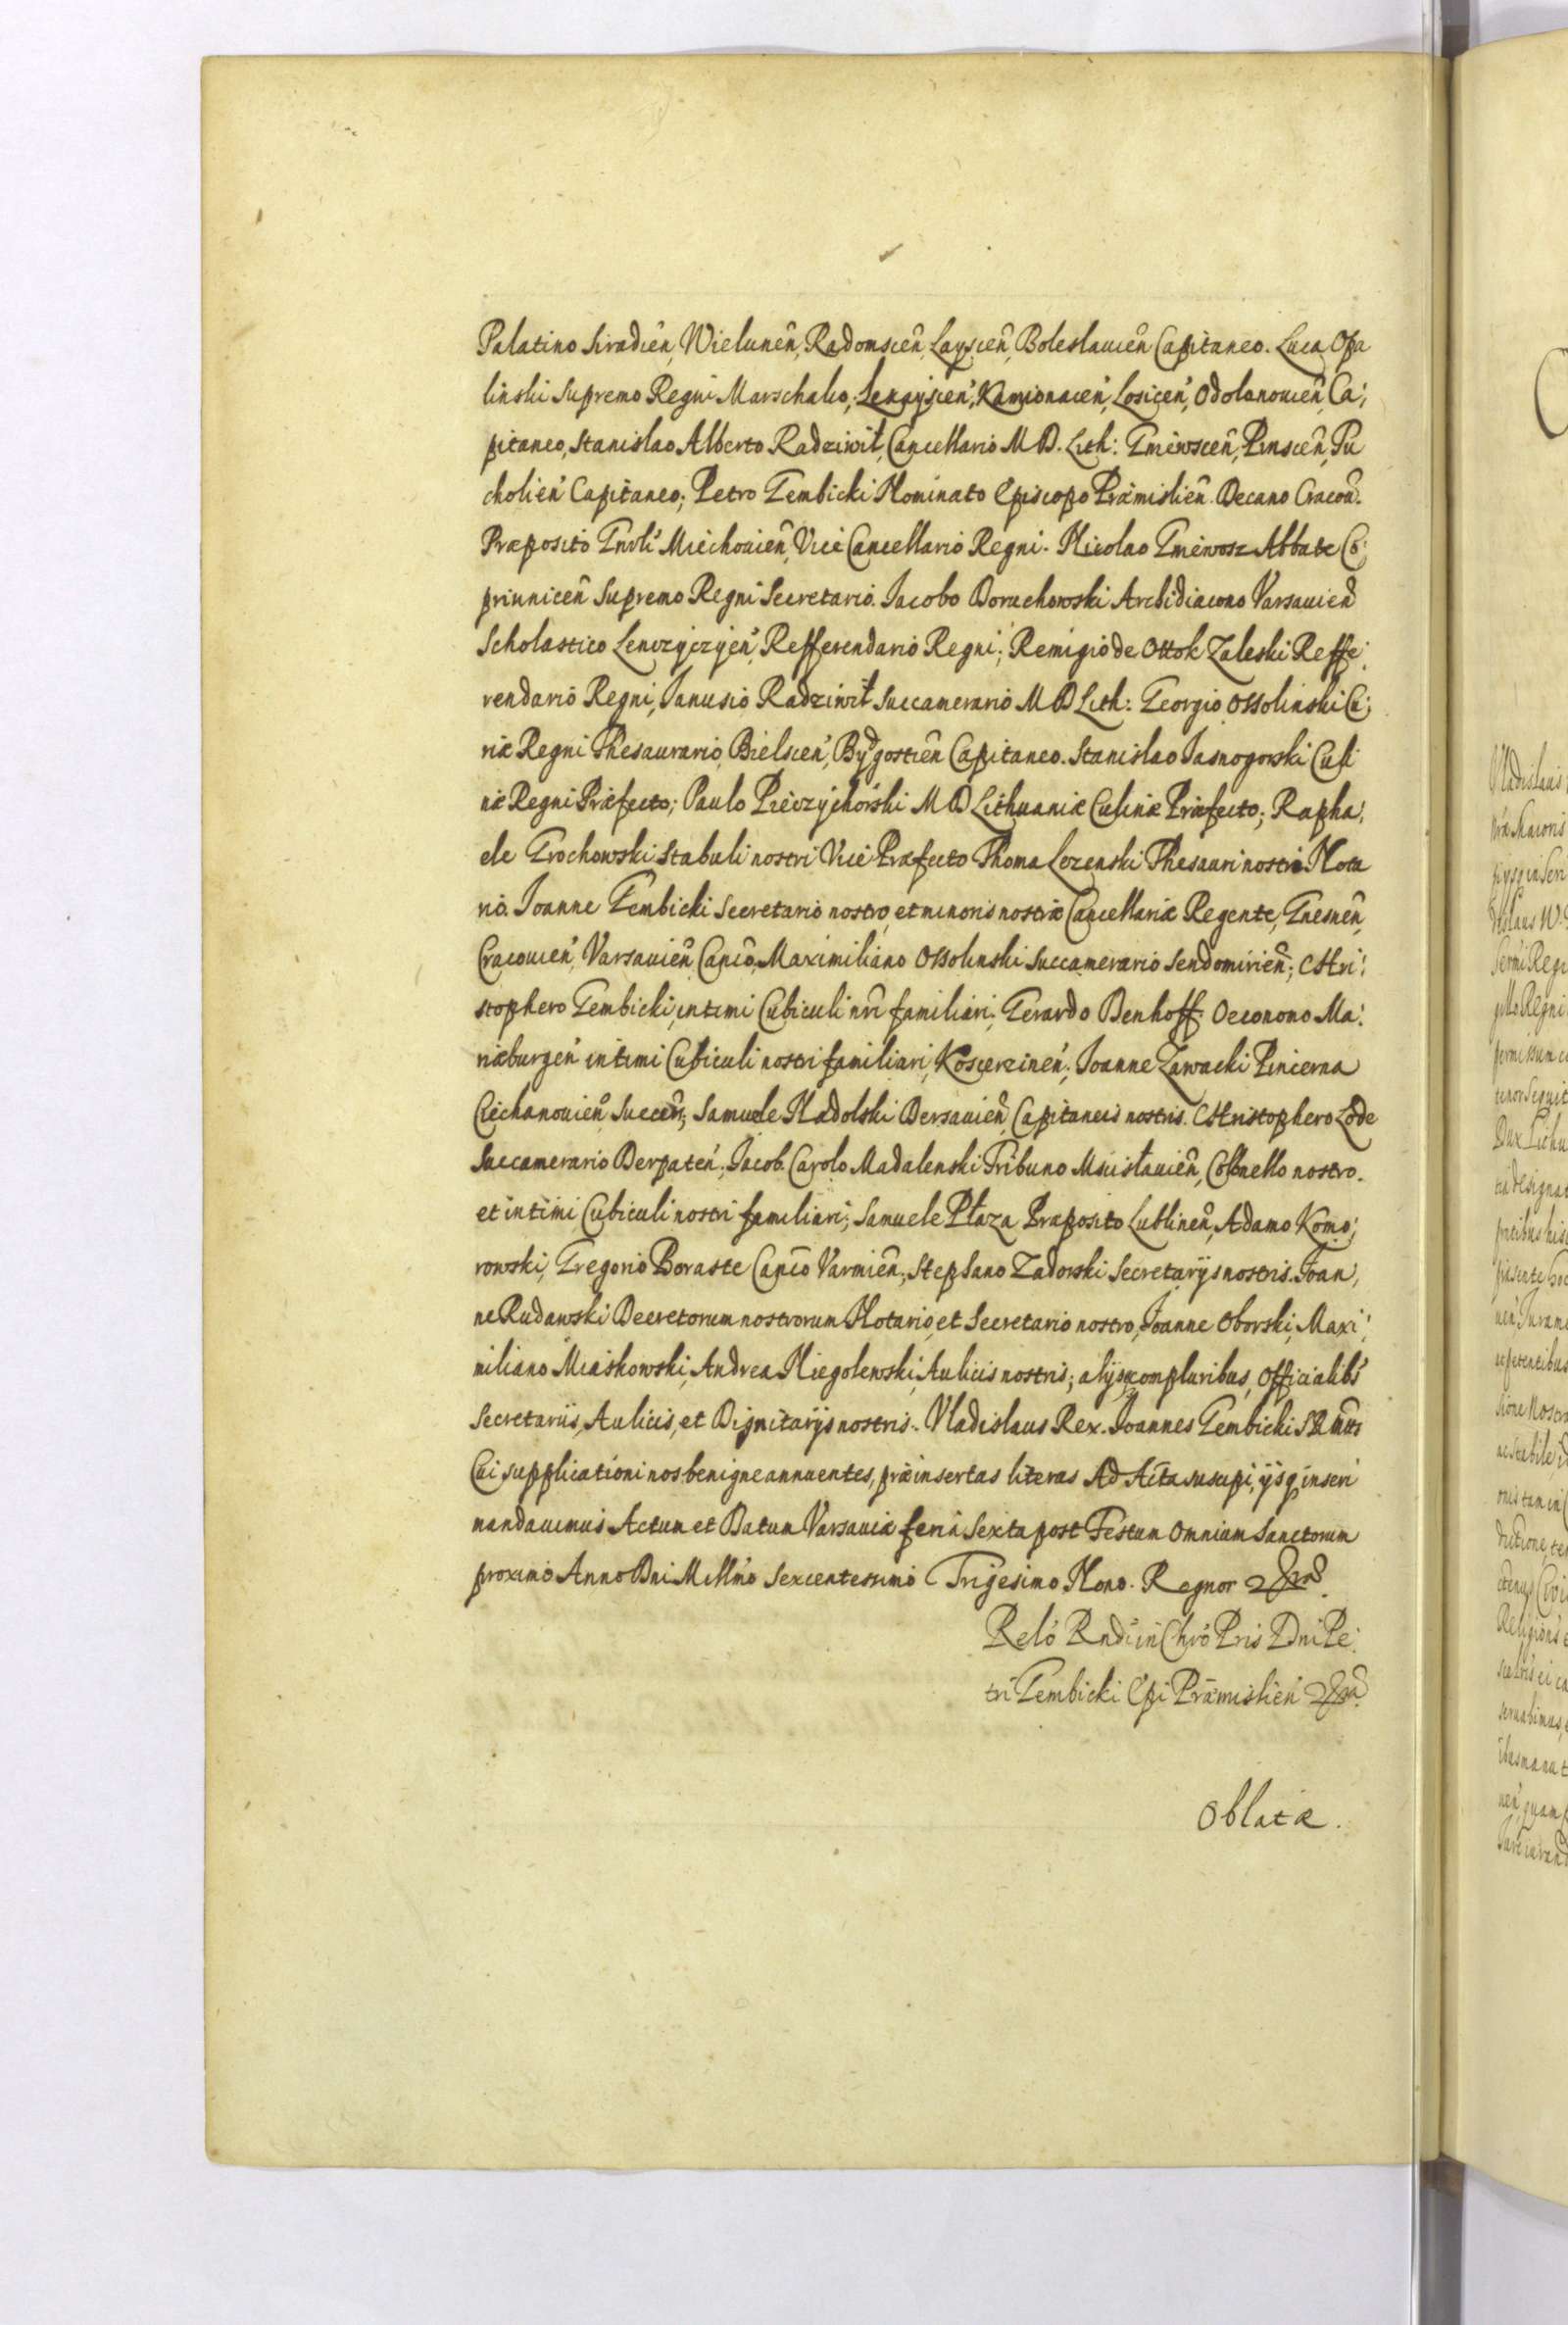 Palatino Siradień, Wieluneń, Radomscień, Layscień, Boleslauień Capitaneo. Luca Opa
linski Supremo Regni Marschalco, Lezayscień, Kamionaceń, Losiceń, Odolanouień, Ca:
pitaneo, Stanislao Alberto Radziwił, Cancellario M D. Lith: Gniewsceń, Pinsceń, Tu
cholień Capitaneo; Petro Gembicki Nominato Episcopo Præmislień. Decano Cracoū.
Præposito Gnrlí Miechouień, Vice Cancellario Regni. Nicolao Gniewosz Abbate Co:
priunicen Supremo Regni Secretario. Iacobo Boruchowski Archidiacono Varsauień
Scholastico Lenczyczyeń, Refferendario Regni; Remigio de Ottok Zaleski Reffe:
rendario Regni, Ianusio Radziwił Succamerario M D Lith: Georgio Ossolinski Cu:
riæ Regni Thesaurario, Bielsceń, Bydgostień Capitaneo. Stanislao Iasnogorski Culi
næ Regni Præfecto; Paulo Pieczychorski M D Lithuaniæ Culinæ Præfecto; Rapha:
ele Grochowski Stabuli nostri Vice Præfecto Thoma Lezenski Thesauri nostri Nota
rio. Ioanne Gembicki Secretario nostro, et minoris nostræ Cancellariæ Regente, Gnesneń,
Cracouień, Varsauień Canco, Maximiliano Ossolinski Succamerario Sendomirień; Chri:
stophero Gembicki, intimi Cubiculi nri familiari; Gerardo Denhoff Oeconomo Ma:
riæburgeń intimi Cubiculi nostri familiari, Koscerzineń; Ioanne Zawacki Pincerna
Ciechanouień Succeń; Samuele Nadolski Bersauień, Capitaneis nostris. Christophero Lode
Succamerario Derpateń. Iacob. Carolo Madalenski Tribuno Mscisłauień, Collnello nostro.
et intimi Cubiculi nostri familiari; Samuele Płaza Præposito Lublineń, Adamo Komo:
rowski, Gregorio Boraste Canco Varmień, Stephano Zadorski Secretarÿs nostris. Ioan:
ne Rudawski Decretorum nostrorum Notario, et Secretario nostro, Ioanne Oborski, Maxi:
miliano Miaskowski, Andrea Niegolewski, Aulicis nostris; alÿsq compluribus, Officialibs
Secretariis, Aulicis, et Dignitarÿs nostris. Vladislaus Rex. Ioannes Gembicki S R Mttis
Cui supplicationi nos benigne annuentes, præinsertas literas Ad Acta suscipi, ÿsq inseri
mandauimus Actum et Datum Varsauiæ feria Sexta post Festum Omnium Sanctorum
proximo Anno Dni Millmo Sexcentesimo Trigesimo Nono. Regnor
Relo Rndi in Chro Pris Dni Pe:
tri Gembicki Epi Præmislień
Oblatæ.